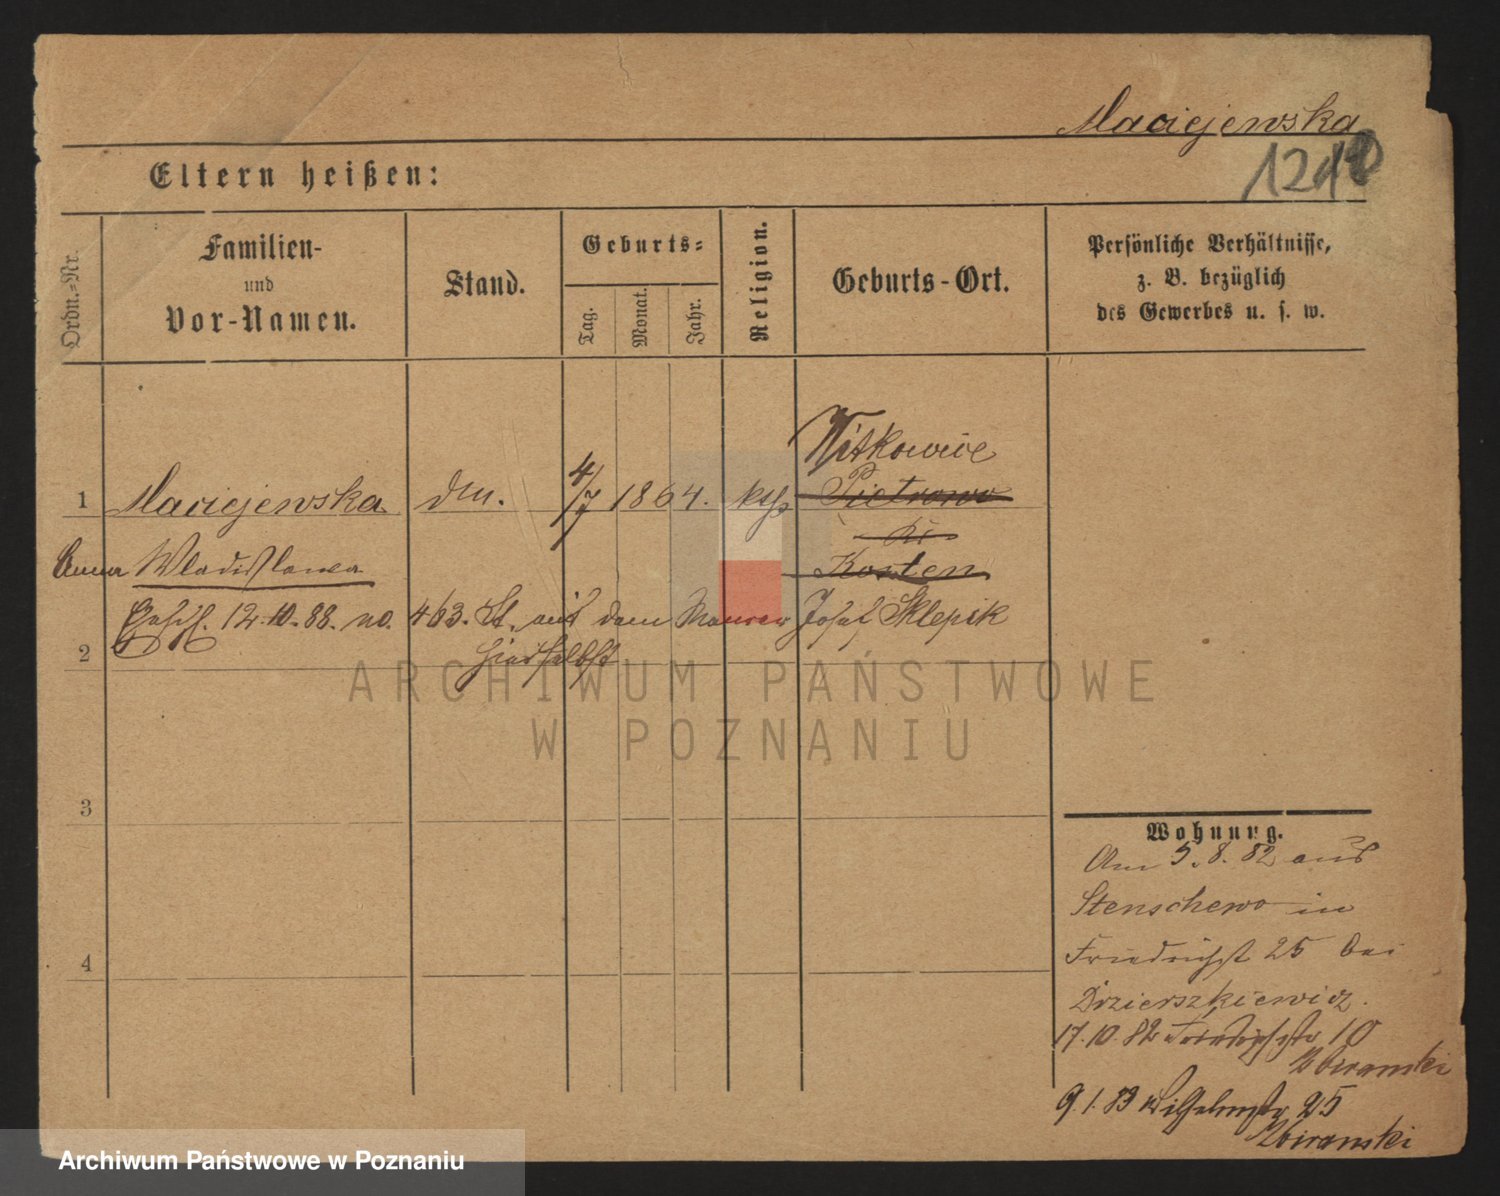 Maciejewska
Eltern heißen:
Ordn.-Nr.
Familien-
und
Vor-Namen.
Stand.
Geburts-
Tag.
Monat.
Jahr.
Religion.
Geburts-Ort.
Persönliche Verhältnisse,
z. B. bezüglich
des Gewerbes u. s. w.
Witkowice
1 Maciejewska 4/7 1864. kth Pietrowo
Kr
Anna Wladislawa Kosten
Gesch. 12.10.88. no. 463. St. mit dem Maurer Josef Sklepik
2 hierselbst
3
4
Wohnung.
Am 5.8.82 aus
Stenschewo in
Friedrichst 25 bei
Drzierszkiewicz.
17.10.82 Friedrichstr 10
9.1.83 Wilhelmstr 25
ARCHIWUM PAŃSTWOWE
W POZNANIU
Archiwum Państwowe w Poznaniu